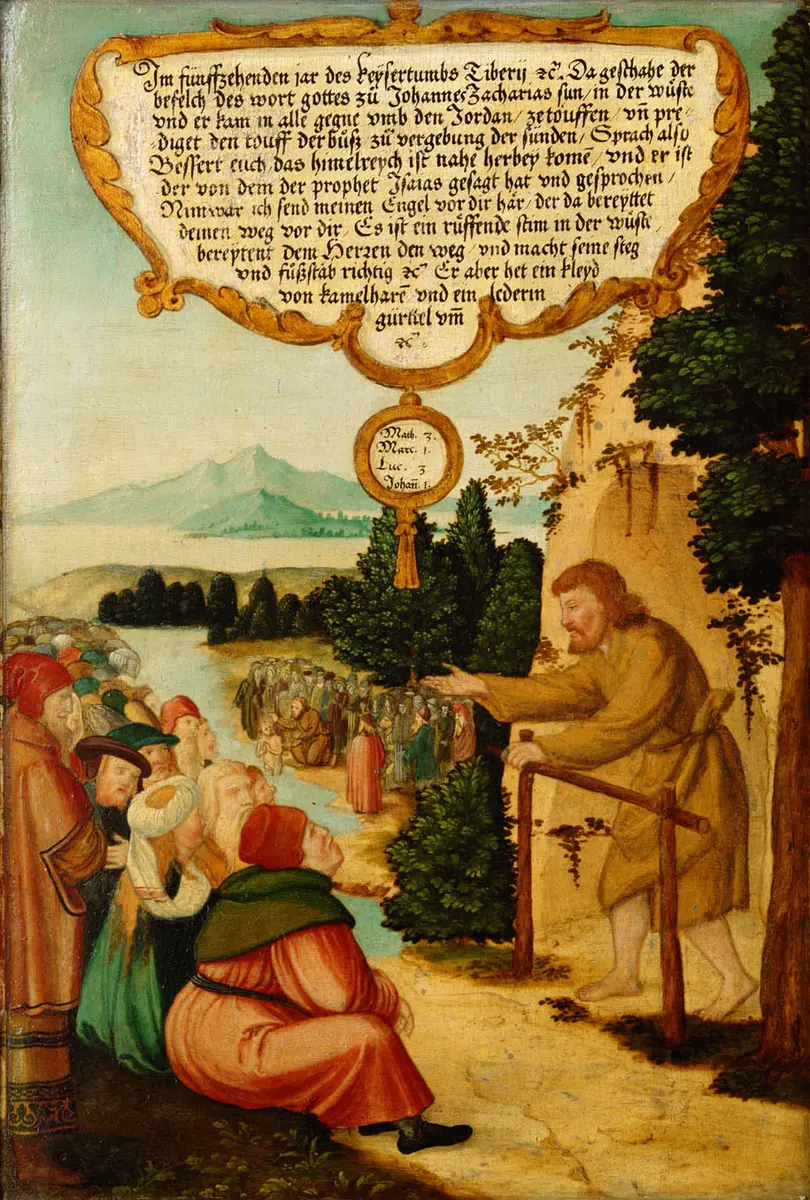 Im fünffzehenden jar des keysertumbs Tiberij ꝛc. Da geschahe der
befelch des wort gottes zů Johannes Zacharias sun / in der wůste
vnd er kam in alle gegne vmb den Jordan / ze touffen / vn̄ pre-
diget den touff der bůsz zů vergebung der sünden / Sprach also
Bessert euch das himelreych ist nahe herbey komē / vnd er ist
der von dem der prophet Isaias gesagt hat vnd gesprochen /
Nim war ich send meinen Engel vor dir här / der da bereyttet
deinen weg vor dir / Es ist ein růffende stim in der wůste /
bereytent dem Herren den weg / vnd macht seine steg
vnd fůßstab richtig ꝛc Er aber het ein kleyd
von kamelharē vnd ein lederin
gürttel vm̄
ꝛc.
Math. 3.
Marc. 1.
Luc. 3
Johan̄. 1.